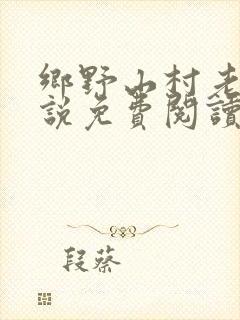 鄉野山村老
說免費閱讀
段蔡